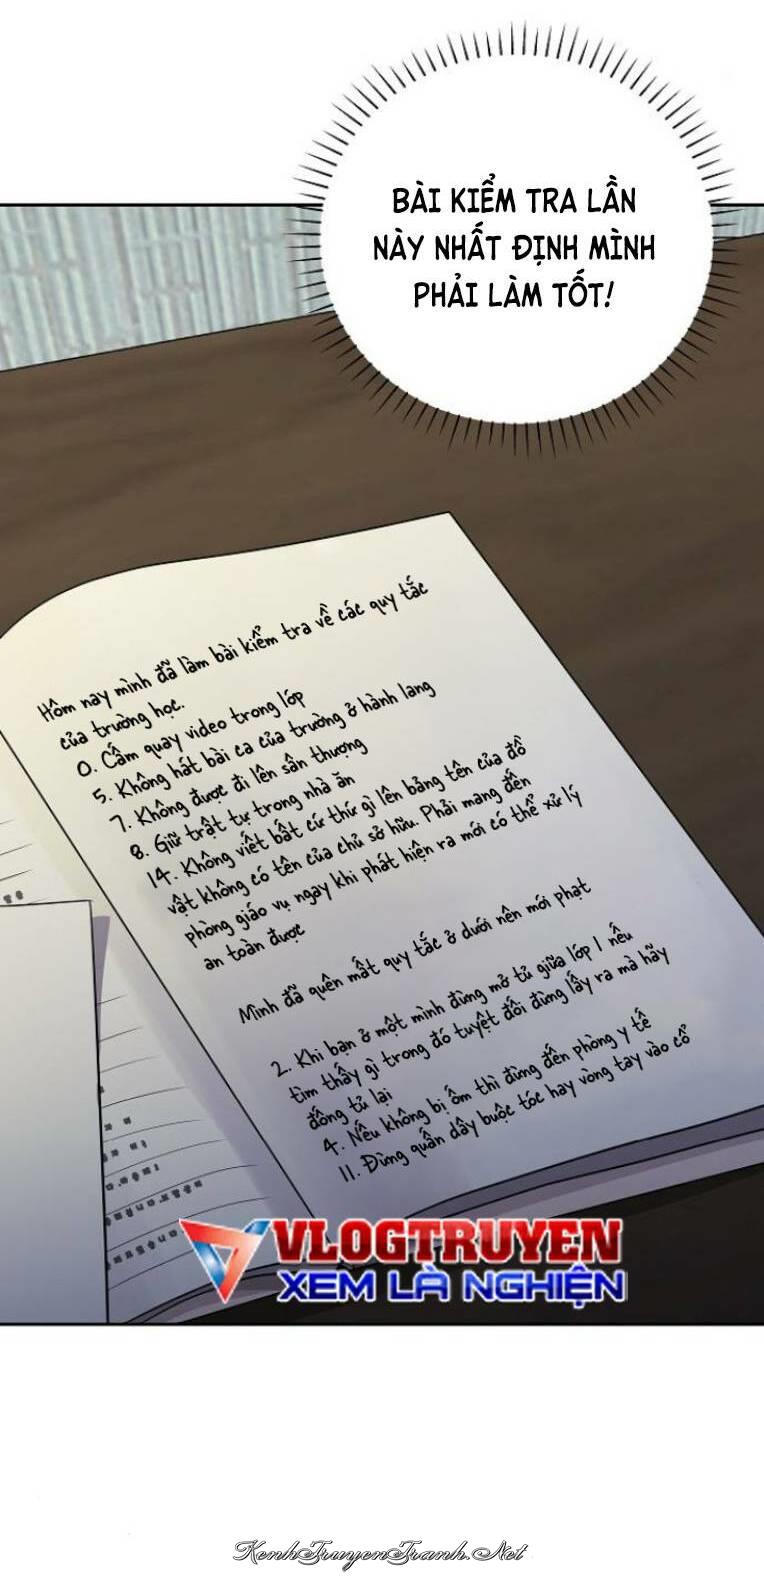 BÀI KIỂM TRA LẦN
NÀY NHẤT ĐỊNH MÌNH
PHẢI LÀM TỐT!
Hôm nay mình đã làm bài kiểm tra về các quy tắc
của trường học.
0. Cấm quay video trong lớp
5. Không hát bài ca của trường ở hành lang
7. Không được đi lên sân thượng
8. Giữ trật tự trong nhà ăn
14. Không viết bất cứ thứ gì lên bảng tên của đồ
vật không có tên của chủ sở hữu. Phải mang đến
phòng giáo vụ ngay khi phát hiện ra mới có thể xử lý
an toàn được
Mình đã quên mất quy tắc ở dưới nên mới phạt
2. Khi bạn ở một mình đừng mở tủ giữa lớp 1 nếu
tìm thấy gì trong đó tuyệt đối đừng lấy ra mà hãy
đóng tủ lại
4. Nếu không bị ốm thì đừng đến phòng y tế
11. Đừng quấn dây buộc tóc hay vòng tay vào cổ
VLOGTRUYEN
XEM LÀ NGHIỆN
KenhTruyenTranh.Net